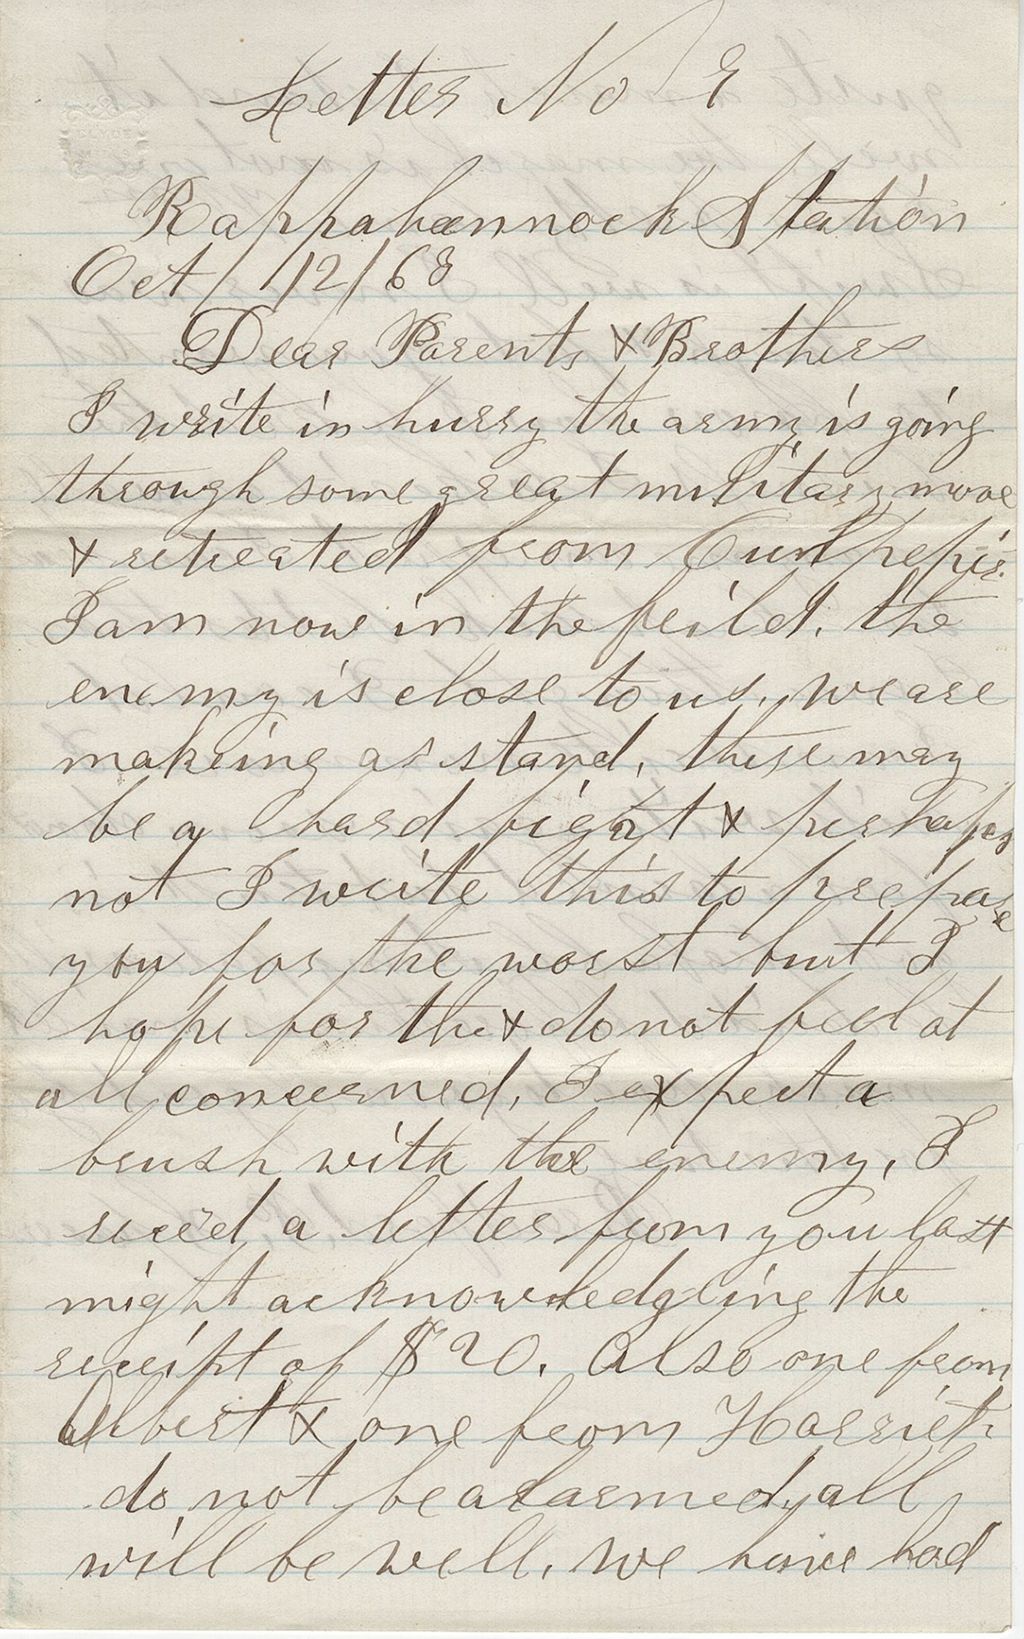 Letter No
Rappahannock Station
Oct / 12 / 63
Dear Parents & Brothers
I write in hurry the army is going
through some great military move
& retreated from Culpeper.
I am now in the feild. the
enemy is close to us. we are
makeing a stand, there may
be a hard fight & perhaps
not I write this to prepare
you for the worst but I
hope for the & do not feel at
all concerned, I expect a
brush with the enemy, I
rece'd a letter from you last
night acknowledgeing the
receipt of $20. Also one from
Albert & one from Harriet.
do not be alarmed, all
will be well, we have had